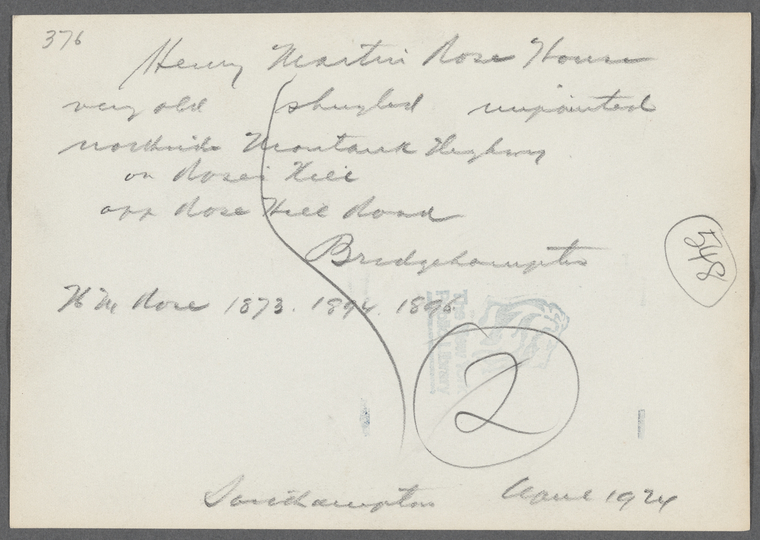 376
Henry Martin Rose House
very old shingled unpainted
northside Montauk Highway
on Rose's Hill
opp Rose Hill Road
Bridgehampton
548
H M Rose 1873. 1894. 1896.
2
Southampton April 1924